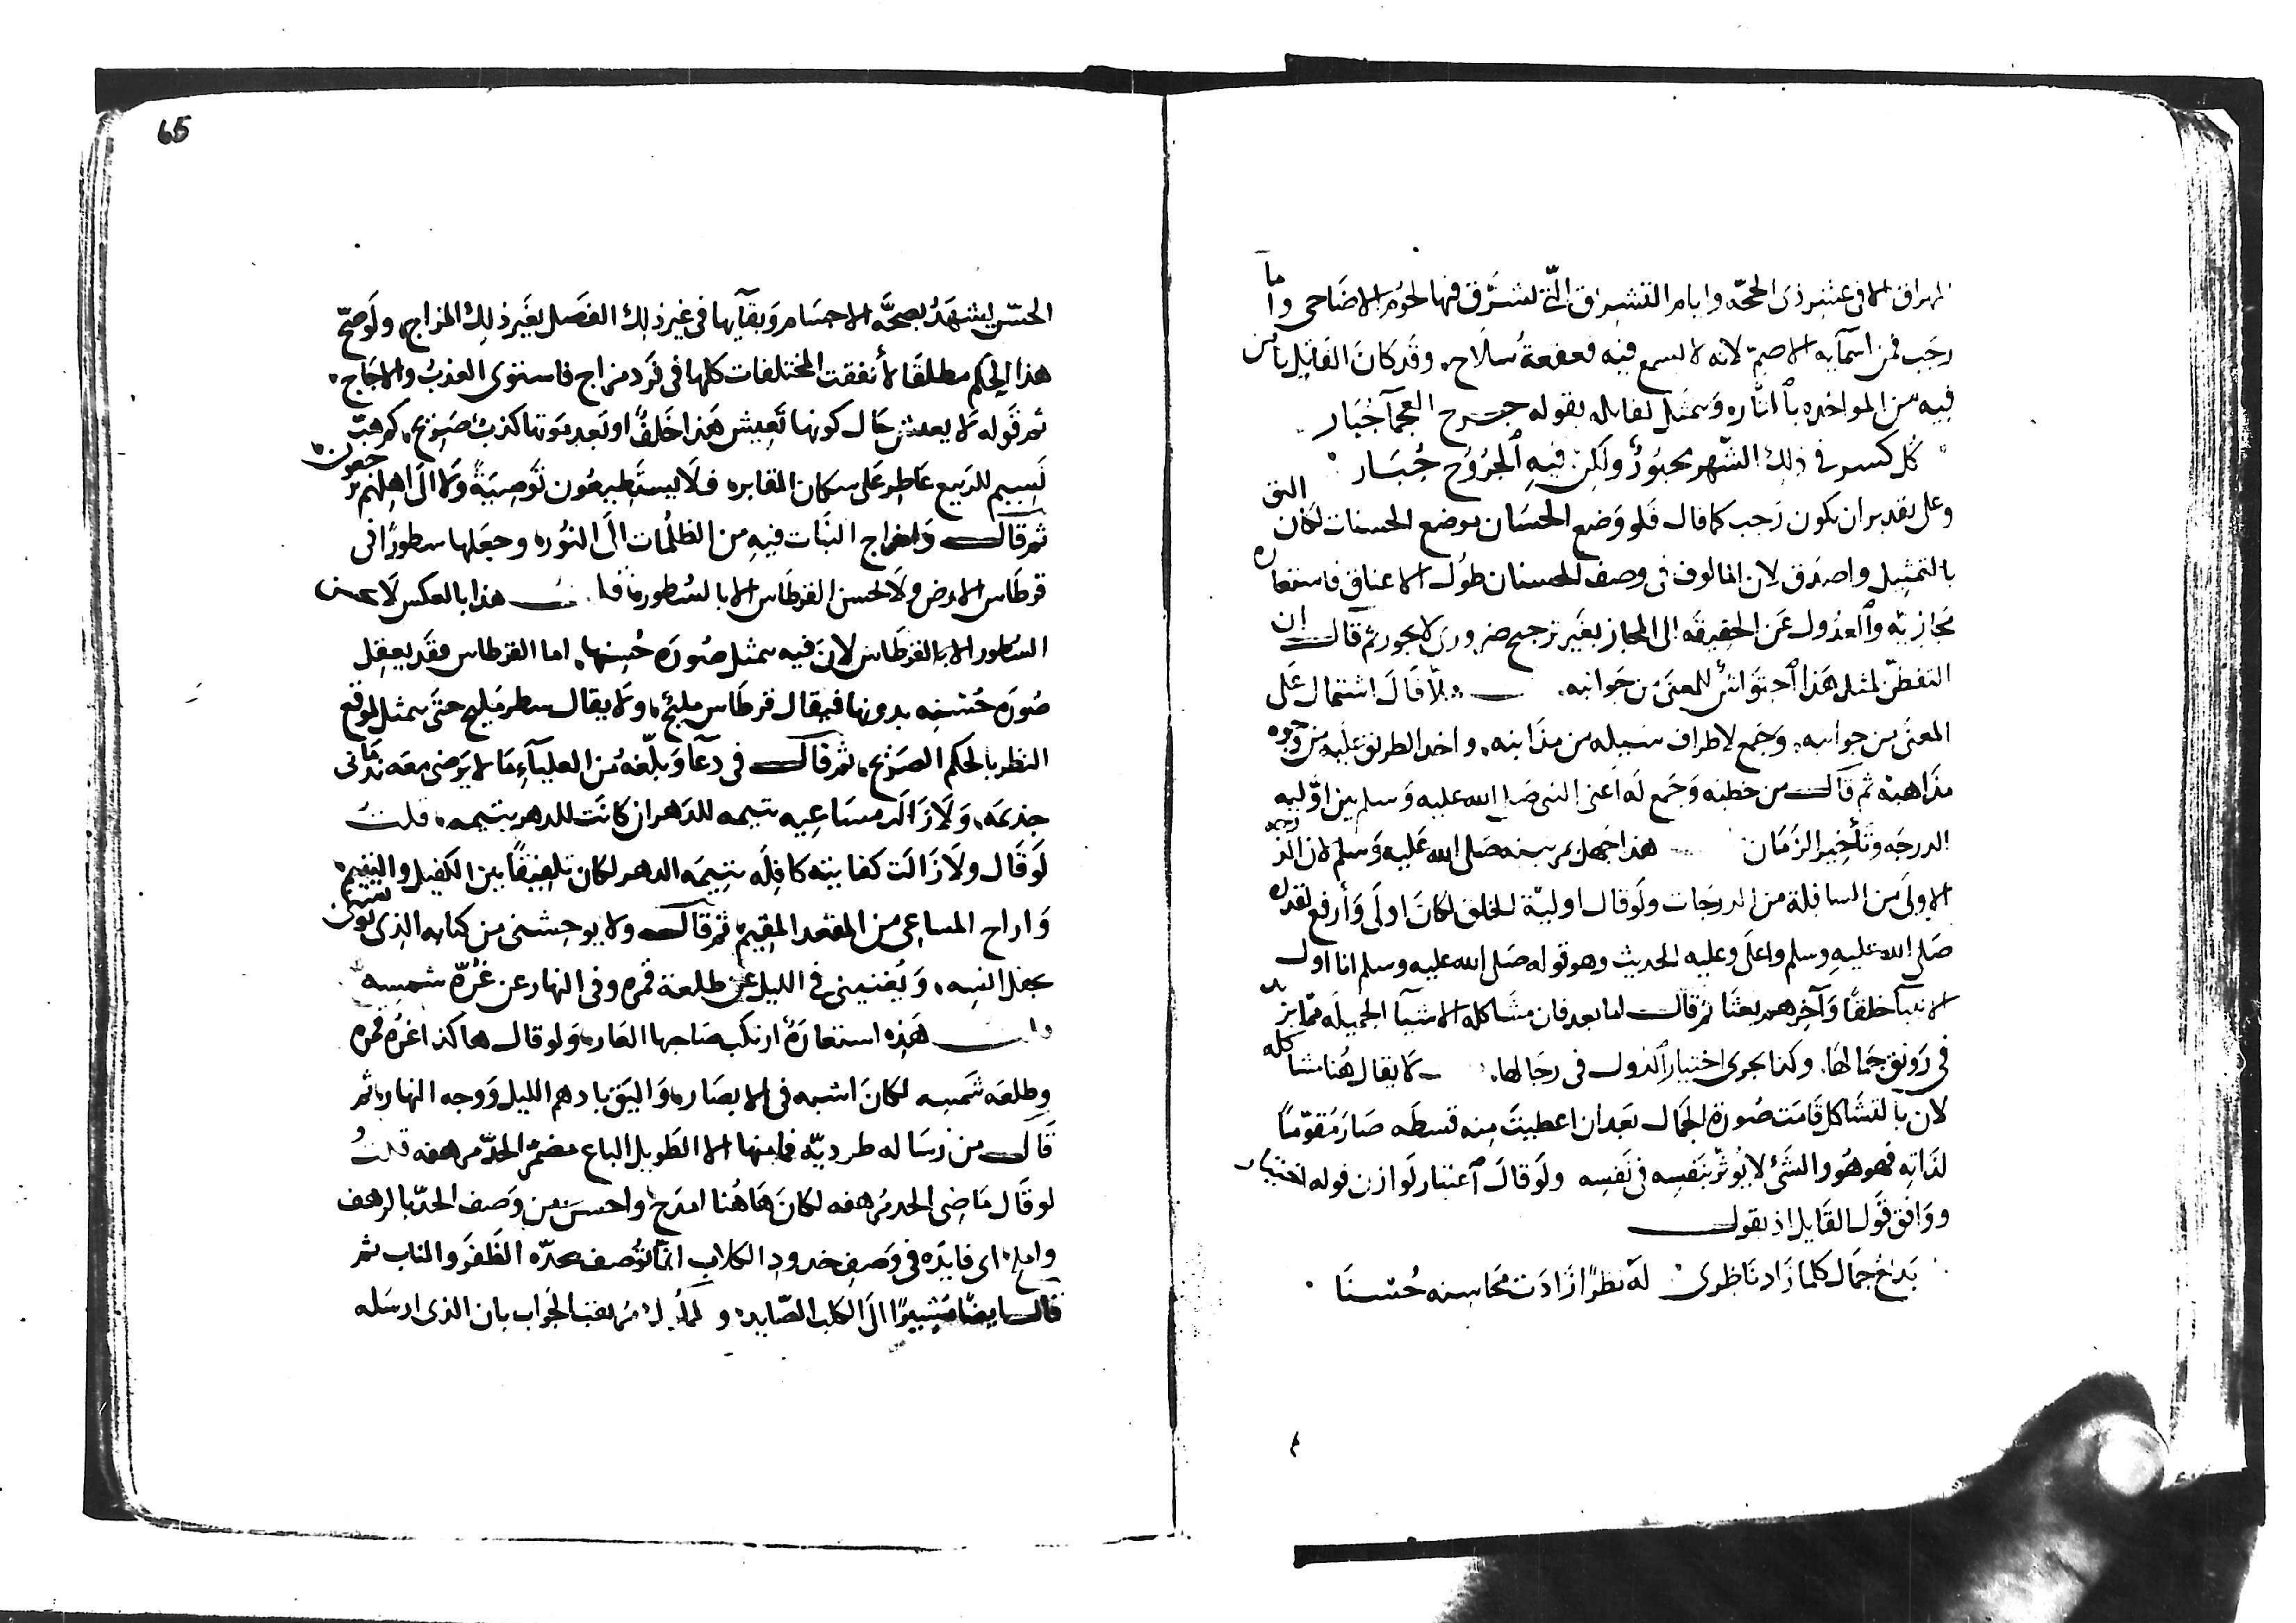 الا فى عشر ذى الحجه وايام التشريق التى تشرق فيها لحوم الاضاحى واما
رجب فمن اسمآيه الاصم لانه لا يسمع فيه قعقعة سلاح، وقد كان القاتل يأمن
فيه من المواخذه بالثاره وتمثل لقابله بقوله جرح العجمآ جبار
كل كسر فى ذلك الشهر مجبور ولكن فيه الجروح جبار
وعلى تقدير ان يكون رجب كما قال فلو وضع الحسان موضع الحسنات لكان اليق
بالتمثيل واصدق لان المالوف فى وصف الحسنان طول الاعناق فاستعاره
مجازيه والعدول عن الحقيقه الى المجاز بغير ترجيح ضرورى لا يجوز ثم قال ان
التفطن لمثل هذا احتواش للمعنى من جوانبه، هلا قال اشتمال على
المعنى من جوانبه، وجمع لاطراف سبيله من مذانبه، واخذ الطريق عليه من وجوه
مذاهبه ثم قال من خطبه وجمع له اعنى النبى صلى الله عليه وسلم بين اوليه
الدرجه وتأخير الزمان هذا جهل بمرتبته صلى الله عليه وسلم لان الدرجه
الاولى من السافلة من الدرجات ولو قال اولية الخلق لكان اولى وأرفع لقدره
صلى الله عليه وسلم واعلى وعليه الحديث وهو قوله صلى الله عليه وسلم انا اول
الانبيآ خلقا وآخرهم بعثا ثم قال اما بعد فان مشاكله الاشيآ الجميله مما يزيد
فى رونق جمالها، وكذا يجرى اختيار الدول فى رجالها، لا يقال هنا مشاكله
لان بالتشاكل قامت صورة الجمال بعد ان اعطيت منه قسطه صار مقوما
لذاته فهو هو والشئ لا يؤثر بنفسه فى نفسه ولو قال اعتبار لوازن قوله اختيار
ووافق قول القايل اذ يقول
بديع جمال كلما زاد ناظرى له نظرا زادت محاسنه حسنا
65
الحس يشهد بصحة الاجسام وبقآيها فى غير ذلك الفصل بغير ذلك المزاج، ولو صح
هذا الحكم مطلقا لأتفقت المختلفات كلها فى فرد مزاج فاستوى العذب والاجاج،
ثم قوله لا يعيش حال كونها تعيش هذا خلف او بعد موتها كذب صريح، كم هب
نسيم للربيع عاطر على سكان المقابر، فلا يستطيعون توصية ولا الى اهلهم يرجعون،
ثم قال واخراج النبات فيه من الظلمات الى النور، وجعلها سطورا فى
قرطاس الارض ولا تحسن القرطاس الا بالسطور، هذا بالعكس لا يحسن
السطور الا بالقرطاس لان فيه تمثل صورة حسنها، اما القرطاس فقد يعقل
صورة حسنه بدونها فيقال قرطاس مليح، ولا يقال سطر مليح حتى تمثل لموقع
النظر بالحكم الصريح، ثم قال فى دعآ وبلغه من العليآء ما لا يرضى معه ندمانى
جذيمه، ولا زالت مساعيه يتيمه للدهر ان كانت للدهر يتيمه، قلت
لو قال ولا زالت كفايته كافلة يتيمه الدهر لكان تلفيقا بين الكفيل واليتيم،
واراح المساعى من المقعد المقيم، ثم قال ولا يوحشنى من كتابه الذى يونسنى
بحفل انسه، ويغنينى فى الليل عن طلعة قمره وفى النهار عن غرة شمسه
قلت هذه استعارة ارتكب صاحبها العار، ولو قال هاكذا غرة قمره
وطلعه شمسه لكان اشبه فى الابصار، واليق بادهم الليل ووجه النهار، ثم
قال من رساله طرديه فما منها الا الطويل الباع مضمر الحد مرهفه قلت
لو قال ماضى الحد مرهفه لكان هاهنا امدح واحسن من وصف الحد بالرهف
واملح، اى فايده فى وصف خدود الكلاب انما توصف بحده الظفر والناب ثم
قال ايضا مشيرا الى الكلب الصايد، و بان الذى ارسله